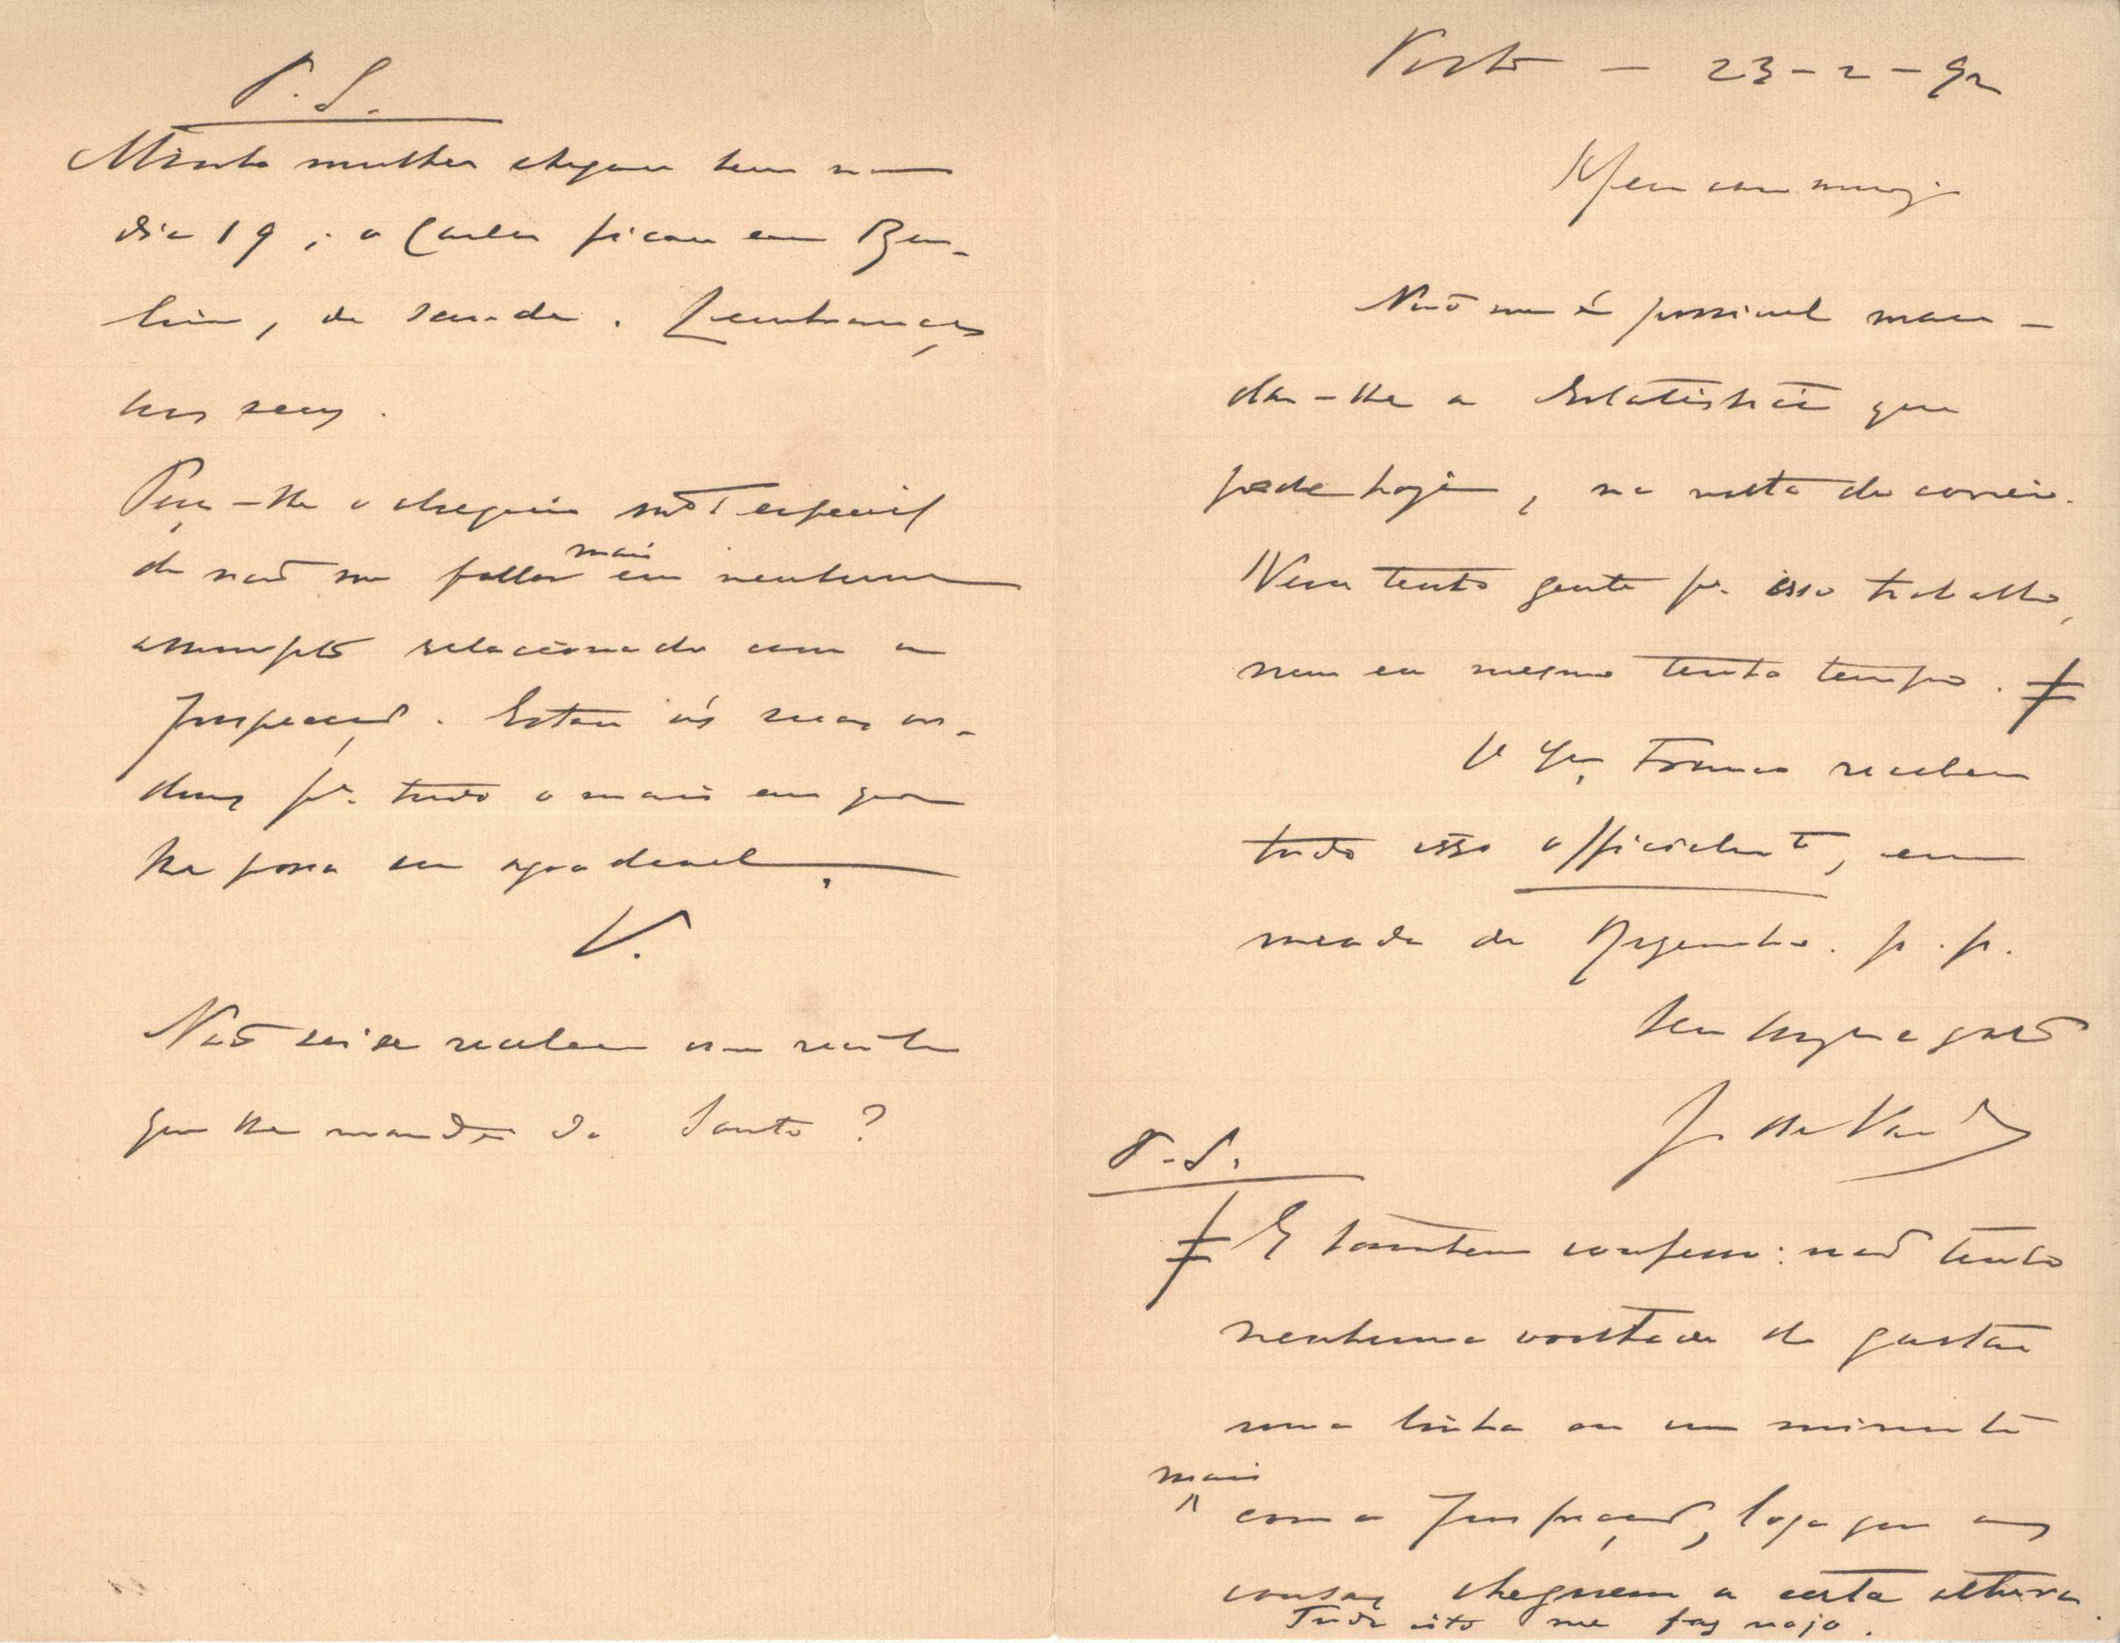 Porto — 23-2-92
Meu caro amigo
Não me é possivel man-
dar-lhe a Estatistica que
pede hoje, na volta do correio.
Nem tenho gente pª. esse trabalho,
nem eu mesmo tenho tempo. ≠
O Franco recebeu
tudo isso officialmte, em
meado de Dezembro. p. p.
Seu
J. de Vas
P.S.
≠ E tambem confesso: não tenho
nenhuma vontade de gastar
uma linha ou um minuto
mais
com a Inspecção, logo que as
cousas cheguem a certa altura.
Tudo isto me faz nojo.
P.S.
Minha mulher chegou bem no
dia 19; o Carlos ficou em Ber-
lim, de saude. Lembranças
aos seus.
Peço-lhe o obsequio mto especial
de não me fallar mais em nenhum
assumpto relacionado com a
Inspecção. Estou ás suas or-
dens pª. tudo o mais em que
lhe possa ser agradavel.
V.
Não sei se recebeu um
que lhe mandei do Santos?